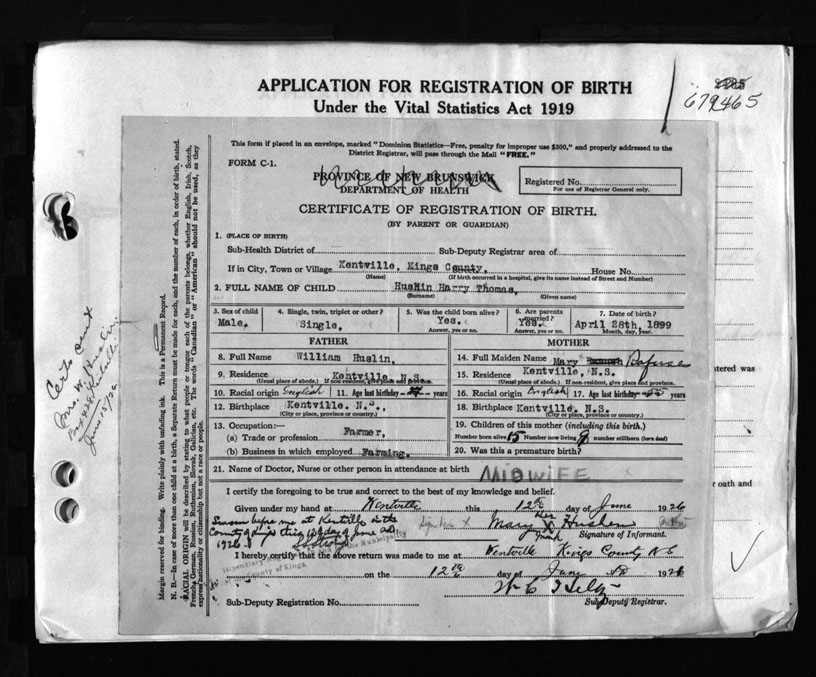 APPLICATION FOR REGISTRATION OF BIRTH
Under the Vital Statistics Act 1919
679465
This form if placed in an envelope, marked "Dominion Statistics—Free, penalty for improper use $300," and properly addressed to the
District Registrar, will pass through the Mail "FREE."
FORM C-1.
PROVINCE OF NEW BRUNSWICK
DEPARTMENT OF HEALTH
Registered No.
For use of Registrar General only.
CERTIFICATE OF REGISTRATION OF BIRTH.
(BY PARENT OR GUARDIAN)
1. (PLACE OF BIRTH)
Sub-Health District of Sub-Deputy Registrar area of
If in City, Town or Village Kentville, Kings County, House No.
(Name) (If birth occurred in a hospital, give its name instead of Street and Number)
2. FULL NAME OF CHILD Huslin Harry Thomas,
(Surname) (Given name)
3. Sex of child 4. Single, twin, triplet or other? 5. Was the child born alive? 6. Are parents married? 7. Date of birth?
Male. Single, Yes. Yes. April 28th, 1899
Answer, yes or no. Answer, yes or no. Month, day, year.
FATHER MOTHER
8. Full Name William Huslin, 14. Full Maiden Name Mary
9. Residence Kentville, N.S. 15. Residence Kentville, N.S.
(Usual place of abode.) If non-resident, give place and province. (Usual place of abode.) If non-resident, give place and province.
10. Racial origin English 11. Age last birthday years 16. Racial origin English 17. Age last birthday years
12. Birthplace Kentville. N.S., 18. Birthplace Kentville, N.S.
(City or place, province or country.) (City or place, province or country.)
13. Occupation:— 19. Children of this mother (including this birth.)
(a) Trade or profession Farmer, Number born alive 15 Number now living 9 number stillborn (born dead)
(b) Business in which employed Farming. 20. Was this a premature birth?
21. Name of Doctor, Nurse or other person in attendance at birth MIDWIFE
I certify the foregoing to be true and correct to the best of my knowledge and belief.
Given under my hand at Kentville this 12th day of June 1926
Sworn before me at Kentville in the
County of Kings this day of June
1926
Mary her X mark
Signature of Informant.
I hereby certify that the above return was made to me at Kentville Kings County N S
County of Kings
on the 12th day of June 1926
Sub-Deputy Registration No. Sub-Deputy Registrar.
Margin reserved for binding. Write plainly with unfading ink. This is a Permanent Record.
N. B.—In case of more than one child at a birth, a Separate Return must be made for each, and the number of each, in order of birth, stated.
RACIAL ORIGIN will be described by stating to what people or tongue each of the parents belongs, whether English, Irish, Scotch,
French, German, Russian, Ruthenian, Slovak, Galician, etc. The words "Canadian" or "American" should not be used, as they
express nationality or citizenship but not a race or people.
Certs sent
Mrs. W.
Kentville
June
tered was
r oath and